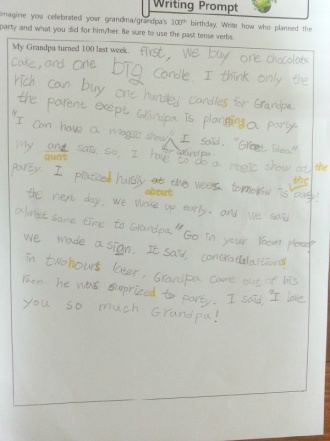 Writing Prompt
Imagine you celebrated your grandma/grandpa's 100th birthday. Write how who planned the
party and what you did for him/her. Be sure to use the past tense verbs.
My Grandpa turned 100 last week. first, we buy one chocolate
cake, and one big candle I think only the
rich can buy one hundred candles for Grandpa.
the parent except Grandpa is planning a party.
"I can have a magic show", I said. "Great Idea"
grandpa
My and said so, I have to do a magic show at the
aunt the
party. I planed hardly at the week. tomorrow is party!
about
the next day, we wake up early, and we said
almost same time to Grandpa "Go in your room please"
we made a sign. It said, congradalations
in two hours later, Grandpa come out of his
room he was surprized to party. I said, "I love
you so much Grandpa!